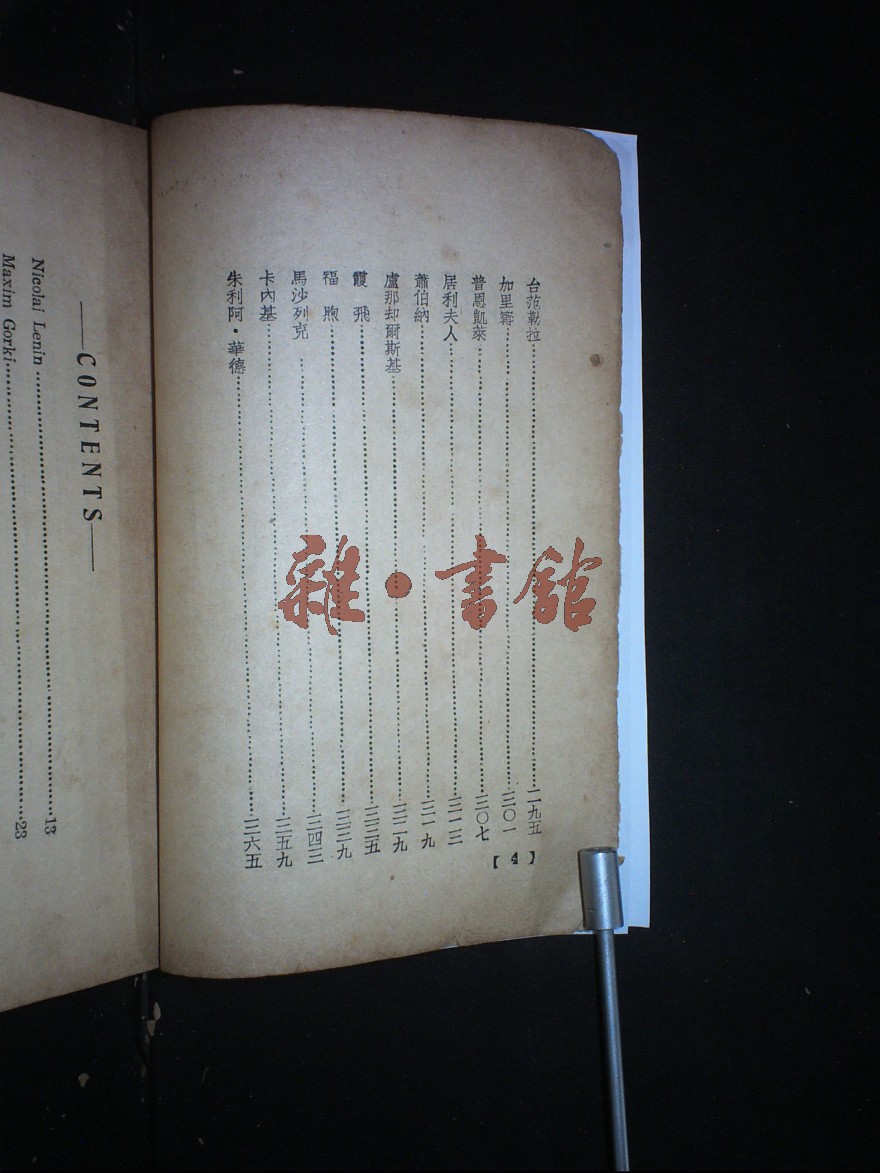 台范勒拉……二九五
加里寗……三〇一
普恩凱萊……三〇七
居利夫人……三一三
蕭伯納……三一九
盧那却爾斯基……三二九
霞飛……三三五
福煦……三三九
馬沙列克……三四三
卡內基……三五九
朱利阿·華德……三六五
【4】
—CONTENTS—
Nicolai Lenin……13
Maxim Gorki……23
雜·書館